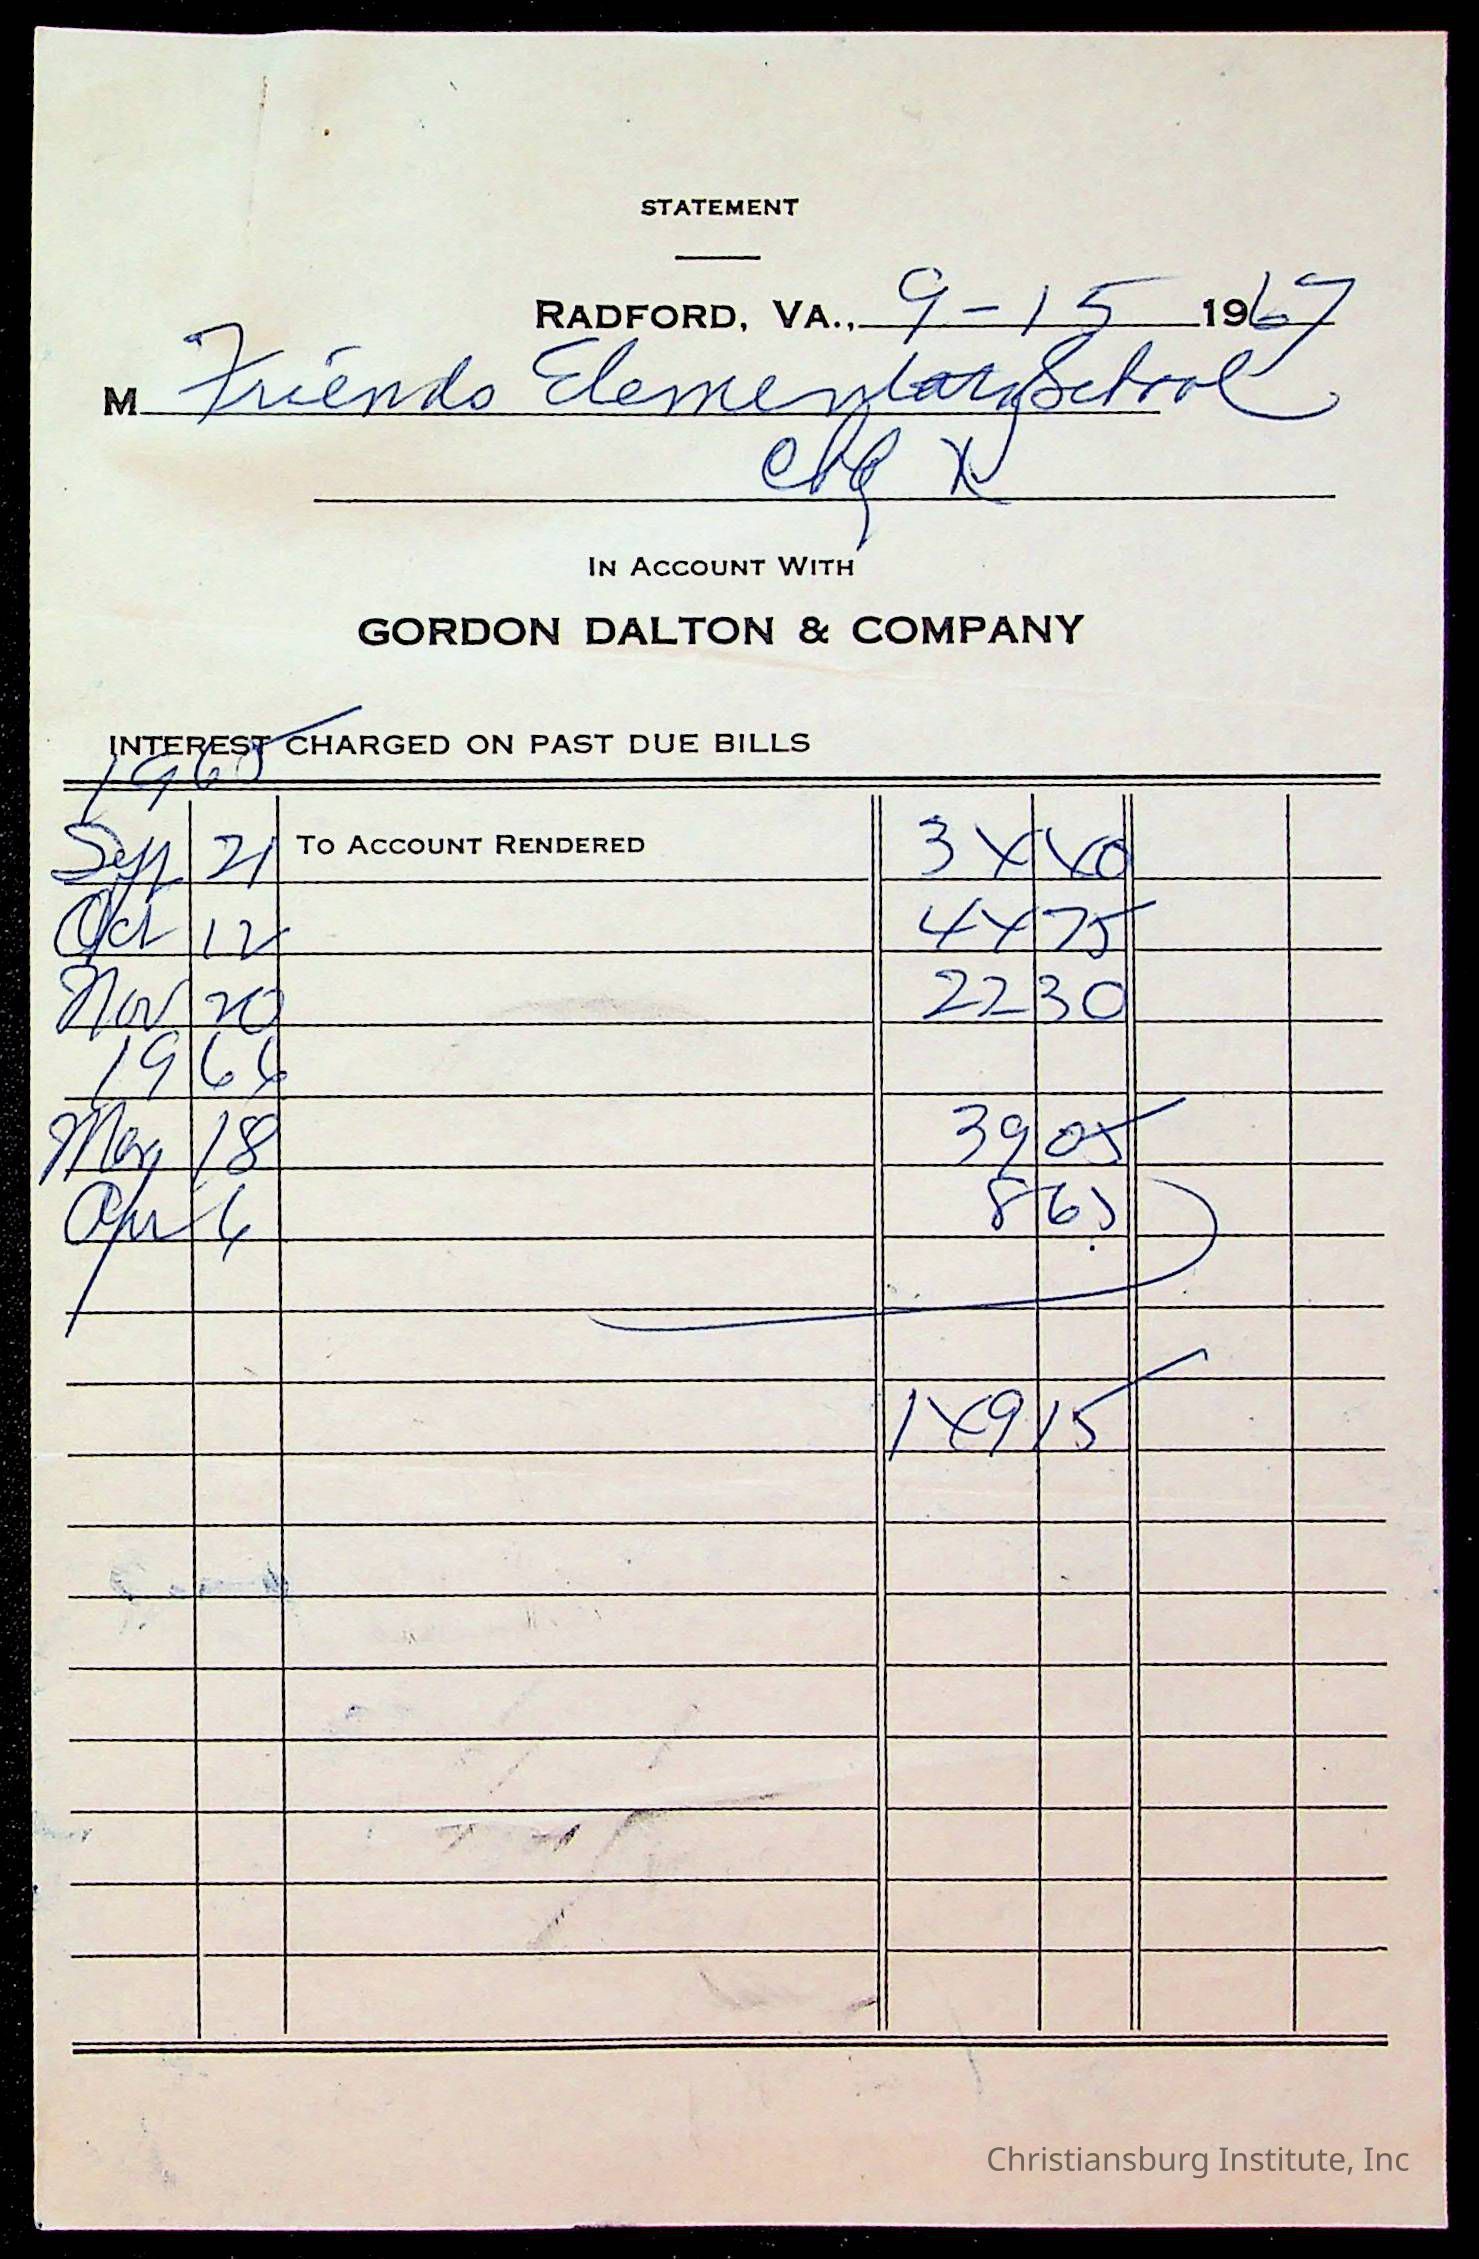 STATEMENT
RADFORD, VA., 9-15 1967
M Friends Elementary School
Cbg
IN ACCOUNT WITH
GORDON DALTON & COMPANY
INTEREST CHARGED ON PAST DUE BILLS
1965
Sep 21 TO ACCOUNT RENDERED 34 40
Oct 12 44 75
Nov 20 22 30
1966
Mar 18 39 05
Apr 6 8 65
149 15
Christiansburg Institute, Inc